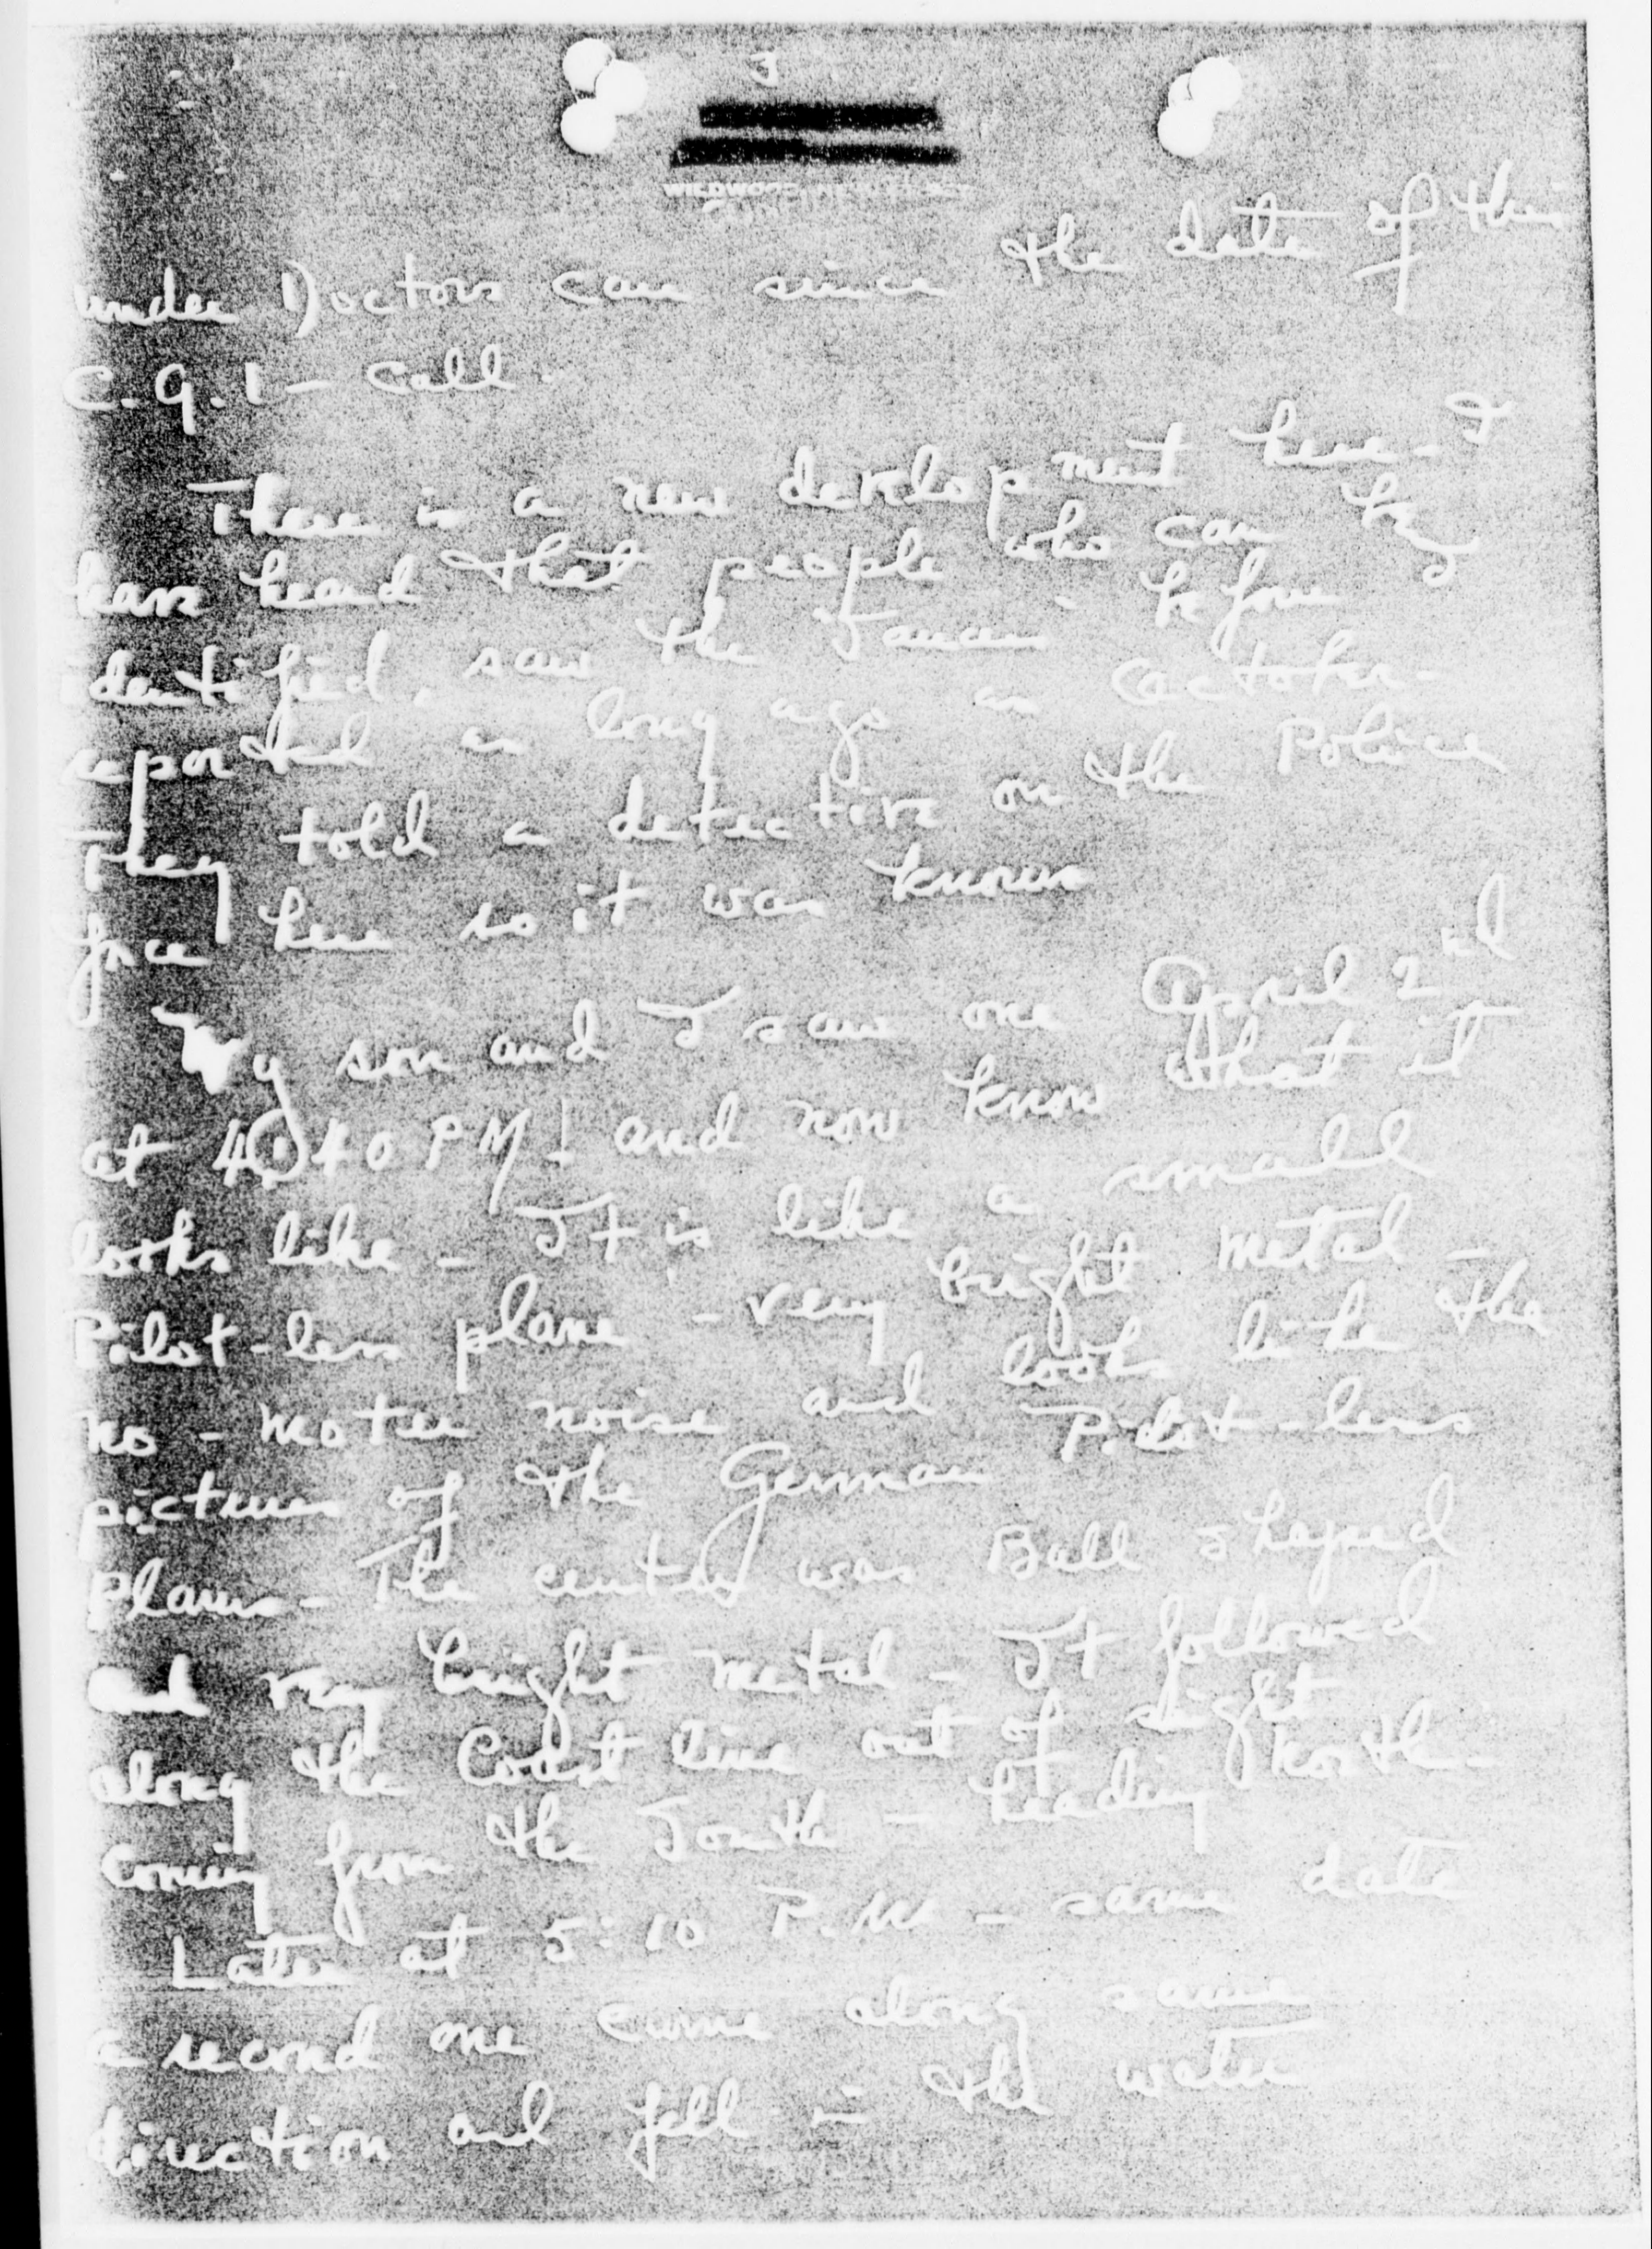 3
under Doctors care since the date of this
C.G.1 - call.
There is a new development here - I
have heard that people who can be
identified, saw the Saucer - before
reported as long ago as October -
They told a detective on the Police
force here so it was known
My son and I saw one April 2nd
at 4:40 PM! and now know what it
looks like - It is like a small
Pilot-less plane - very bright metal -
no - motor noise and looks like the
pictures of the German Pilot-less
Planes - The center was Ball shaped
and very bright metal - It followed
along the Coast line out of sight
coming from the South - heading North -
Later at 5:10 P.M - same date
a second one came along same
direction and fell in the water